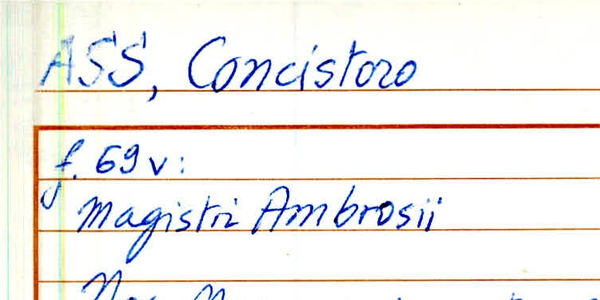 ASS, Concistoro
f. 69v:
Magistri Ambrosii